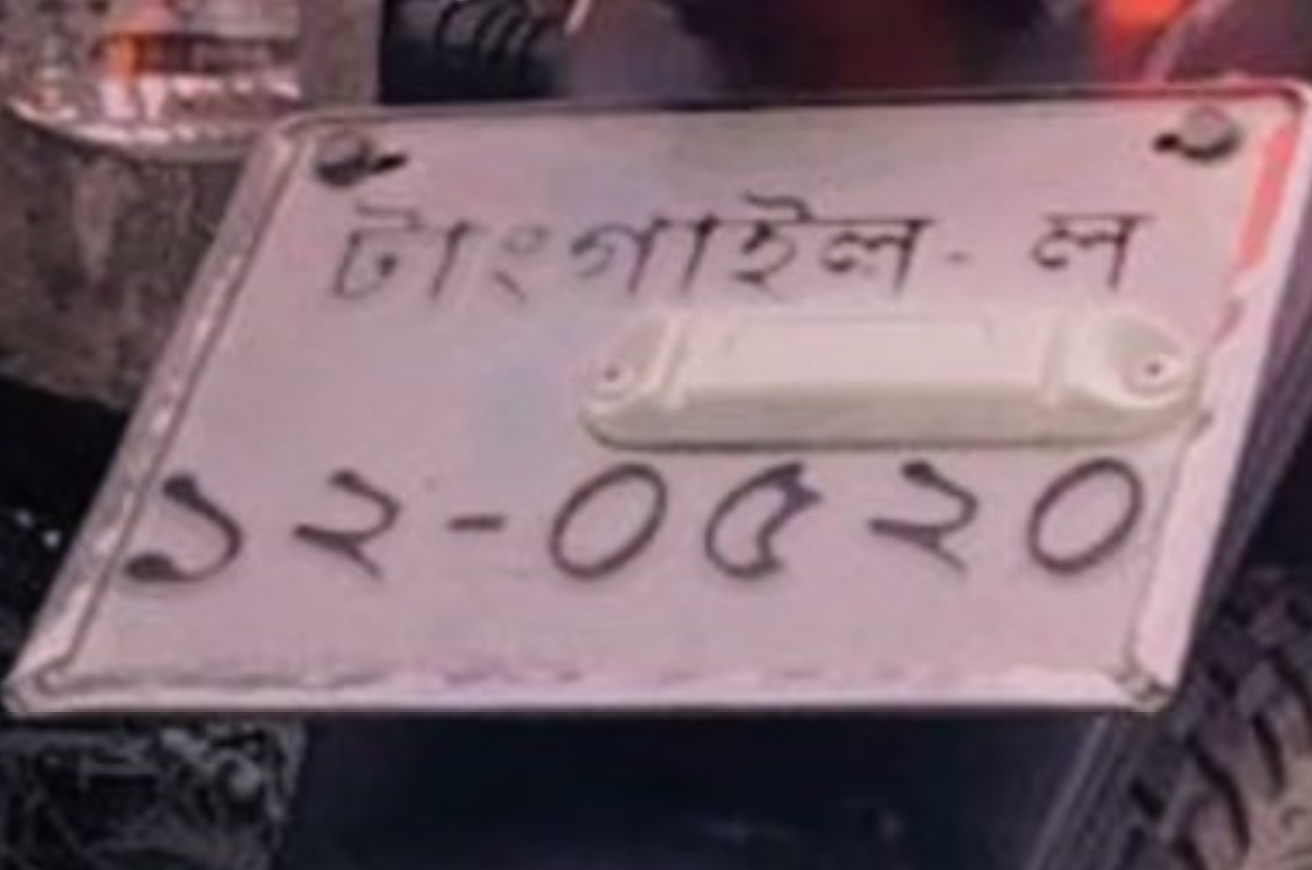 টাংগাইল - ল
১২-০৫২০